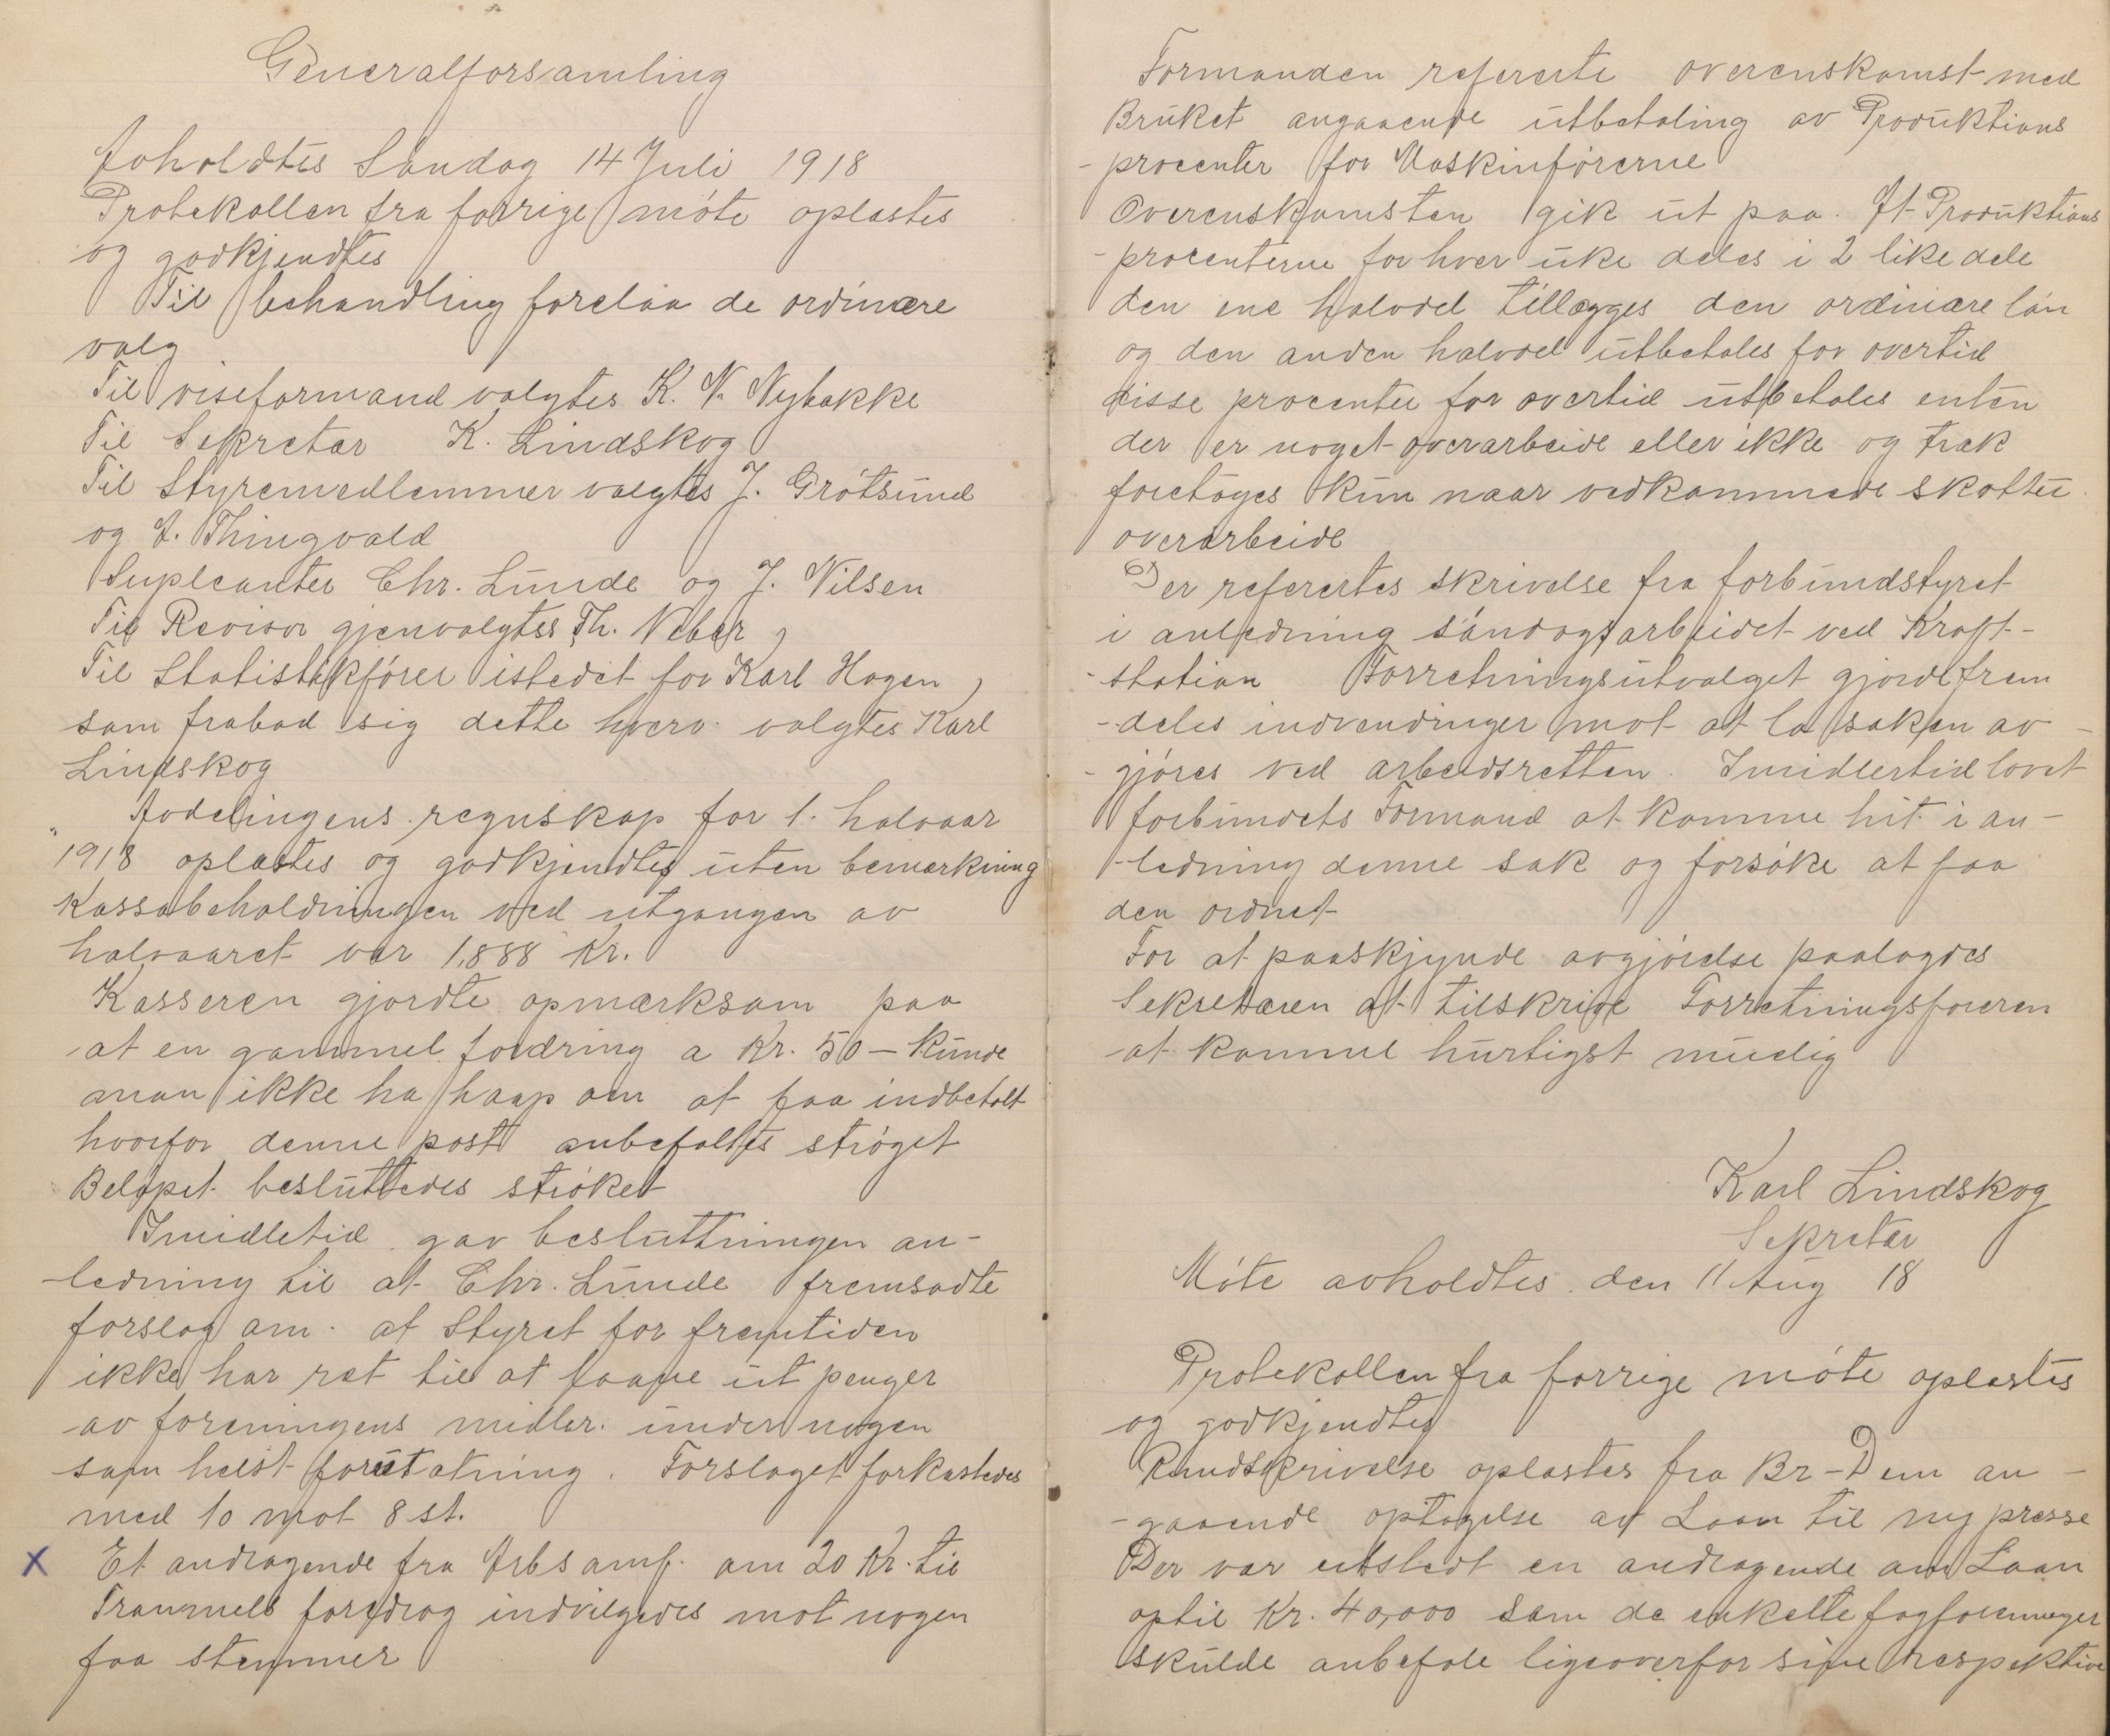 Generalforsamling
Avholdtes Søndag 14 Juli 1918
Protokollen fra forrige møte oplæstes
og godkjendtes
Til behandling forelaa de ordinære
valg
Til viseformand valgtes K. N. Nybakke
Til Sekretær K. Lindskog
Til Styremedlemmer valgtes J. Grøtsund
og A. Thingvald
Supleanter Chr. Lunde og J. Nilsen
Til Revisor gjenvalgtes Th. Neber
Til Statistikfører istedet for Karl Hagen
som frabad sig dette hverv valgtes Karl
Lindskog
Avdelingens regnskap for 1. halvaar
1918 oplæstes og godkjendtes uten bemerkning
Kassabeholdningen ved utgangen av
halvaaret var 1,888 Kr.
Kasseren gjordte opmærksom paa
at en gammel fordring a Kr. 50 – Kunde
man ikke ha haap om at faa indbetalt
hvorfor denne post anbefaltes strøget
Beløpet besluttedes strøket
Imidletid gav besluttningen an-
-ledning til at Chr. Lunde fremsadte
forslag om at Styret for fremtiden
ikke har ret til at laane ut penger
av foreningens midler. under nogen
som helst forutsætning. Forslaget forkastedes
med 10 mot 8 st.
X Et andragende fra Arbsamf. om 20 Kr. til
Tranmels foredrag indvilgedes mot nogen
faa stemmer
Formanden refererte overenskomst med
Bruket angaaende utbetaling av Produktions
-procenter for Maskinførerne
Overenskomsten gik ut paa. At Produktions
-procenterne for hver uke deles i 2 like dele
den ene halvdel tillægges den ordinære løn
og den anden halvdel utbetales for overtid
disse procenter for overtid utbetales enten
der er noget overarbeide eller ikke og træk
foretages kun naar vedkommede skofter
overarbeide
Der refertes skrivelse fra forbundstyret
i anledning søndagsarbeidet ved Kraft-
-station Forretningsutvalget gjorde frem
-deles indvendinger mot at la saken av-
-gjøres ved arbeidsretten. Imidlertid lovet
forbundets Formand at komme hit i an-
-ledning denne sak og forsøke at faa
den ordnet
For at paaskjynde avgjørelse paalagdes
Sekretæren at tilskrive Forretningsføreren
at komme hurtigst muelig
Karl Lindskog
Sekretær
Møte avholdtes den 11 Aug 18
Protokollen fra forrige møte oplæstes
og godkjendtes
Rundskrivelse oplæstes fra Br-Dem an-
-gaaende optagelse av Laan til ny presse
Der var utstedt en andragende om Laan
optil Kr. 40,000 som de enkelte fagforeninger
skulde anbefale ligeoverfor sine respektive